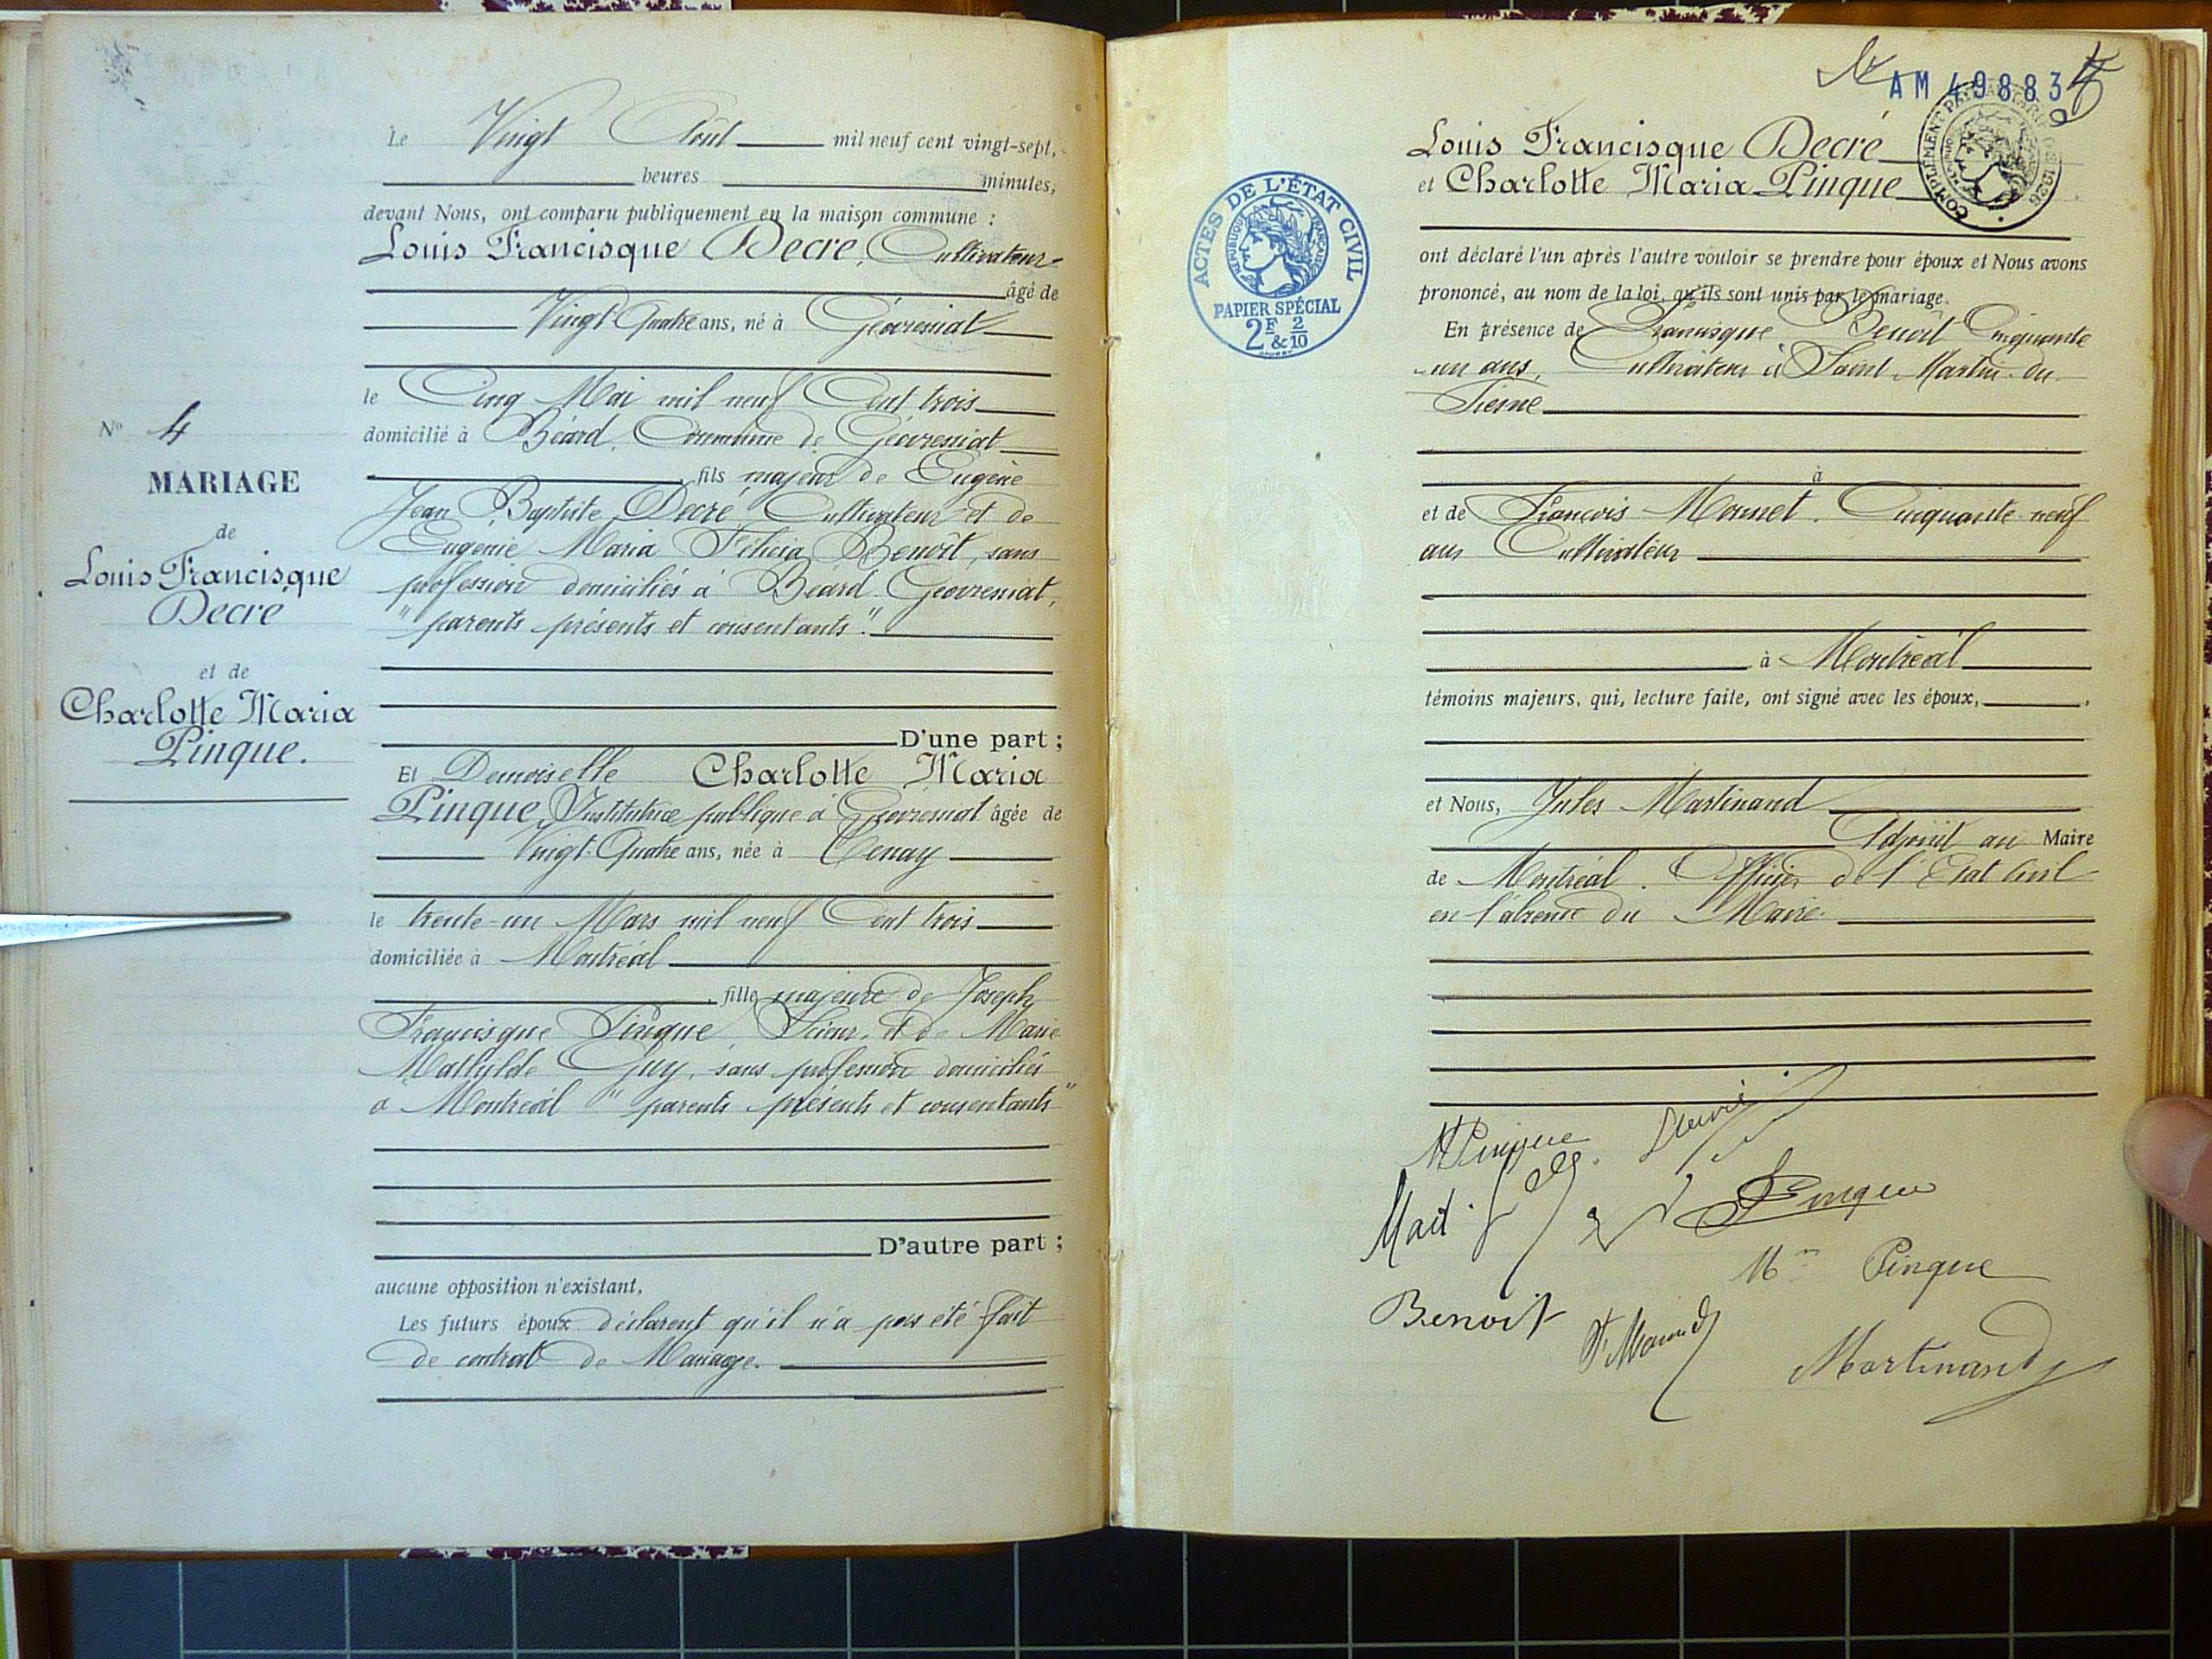 Le Vingt Août mil neuf cent vingt-sept,
heures minutes,
devant Nous, ont comparu publiquement en la maison commune :
Louis Francisque Decré, Cultivateur
âgé de
Vingt-Quatre ans, né à Géovressiat
le Cinq Mai mil neuf Cent trois
domicilié à Béard, Commune de Géovressiat
, fils majeur de Eugène
Jean Baptiste Decré Cultivateur et de
Eugénie Maria Félicia Benoît, sans
profession domiciliés à Béard Géovressiat,
"parents présents et consentants".
D'une part ;
Et Demoiselle Charlotte Maria
Pinque, Institutrice publique à Géovressiat âgée de
Vingt-Quatre ans, née à Tenay
le trente-un Mars mil neuf Cent trois
domiciliée à Montréal
, fille majeure de Joseph
Francisque Pinque, Scieur, et de Marie
Mathylde Guy, sans profession domiciliés
à Montréal "parents présents et consentants"
D'autre part ;
aucune opposition n'existant,
Les futurs époux déclarent qu'il n'a pas été fait
de contrat de Mariage.
N° 4
MARIAGE
de
Louis Francisque
Decré
et de
Charlotte Maria
Pinque.
AM 49883
COMPLÉMENT 1926
Louis Francisque Decré
et Charlotte Maria Pinque
ACTES DE L'ÉTAT CIVIL
RÉPUBLIQUE FRANÇAISE
PAPIER SPÉCIAL
2F & 2/10
ont déclaré l'un après l'autre vouloir se prendre pour époux et Nous avons
prononcé, au nom de la loi, qu'ils sont unis par le mariage.
En présence de Francisque Benoît Cinquante
-un ans, Cultivateur à Saint-Martin-du-
Fresne
à
et de François Monnet. Cinquante-neuf
ans Cultivateur
à Montréal
témoins majeurs, qui, lecture faite, ont signé avec les époux,
et Nous, Jules Martinand
Adjoint au Maire
de Montréal. Officier de l'Etat Civil
en l'absence du Maire.
M Pinque
Pinque
Mme Pinque
Benoit
Martinand